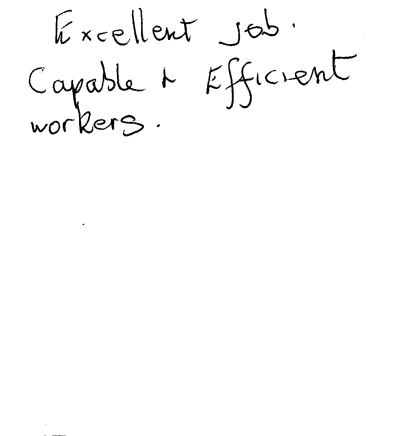 Excellent job.
Capable & Efficient
workers.